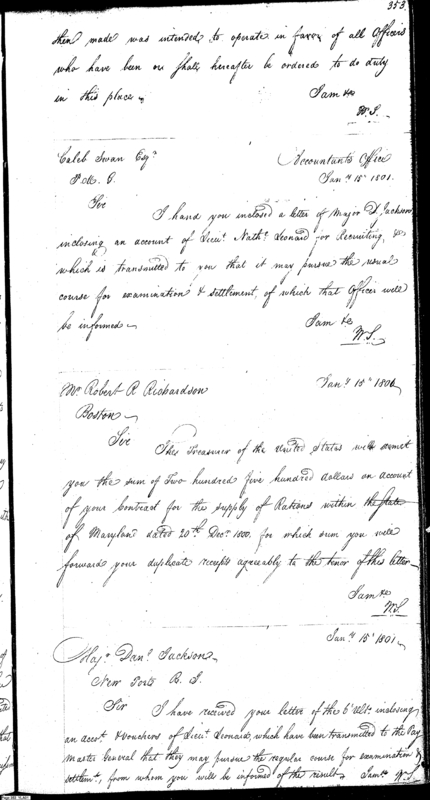 353
then made was intended to operate in favor of all Officers
who have been or shall hereafter be ordered to do duty
in this place.
I am &c
W. S.
Caleb Swan Esqr.
P. M. G.
Accountants Office
Jany. 15th 1801.
Sir
I hand you inclosed a letter of Major D. Jackson
inclosing an account of Lieut. Nathl. Leonard for Recruiting, &c
which is transmitted to you that it may pursue the usual
course for examination & settlement, of which that Officer will
be informed.
I am &c
W. S.
Mr. Robert R Richardson
Jany. 15th 1801
Boston
Sir
The Treasurer of the United States will remit
you the sum of Two hundred five hundred dollars on account
of your Contract for the supply of Rations within the State
of Maryland dated 20th. Decr. 1800. for which sum you will
forward your duplicate receipts agreeably to the tenor of this letter
I am &c
W. S.
Jany. 15th 1801.
Majr. Danl. Jackson
New Ports R. I.
Sir
I have received your letter of the 6th Ulto. inclosing
an accot. & Vouchers of Lieut Leonard, which have been transmitted to the Pay
Master General that they may pursue the regular course for examination &
settlemt., from whom you will be informed of the result. I am &c W. S.